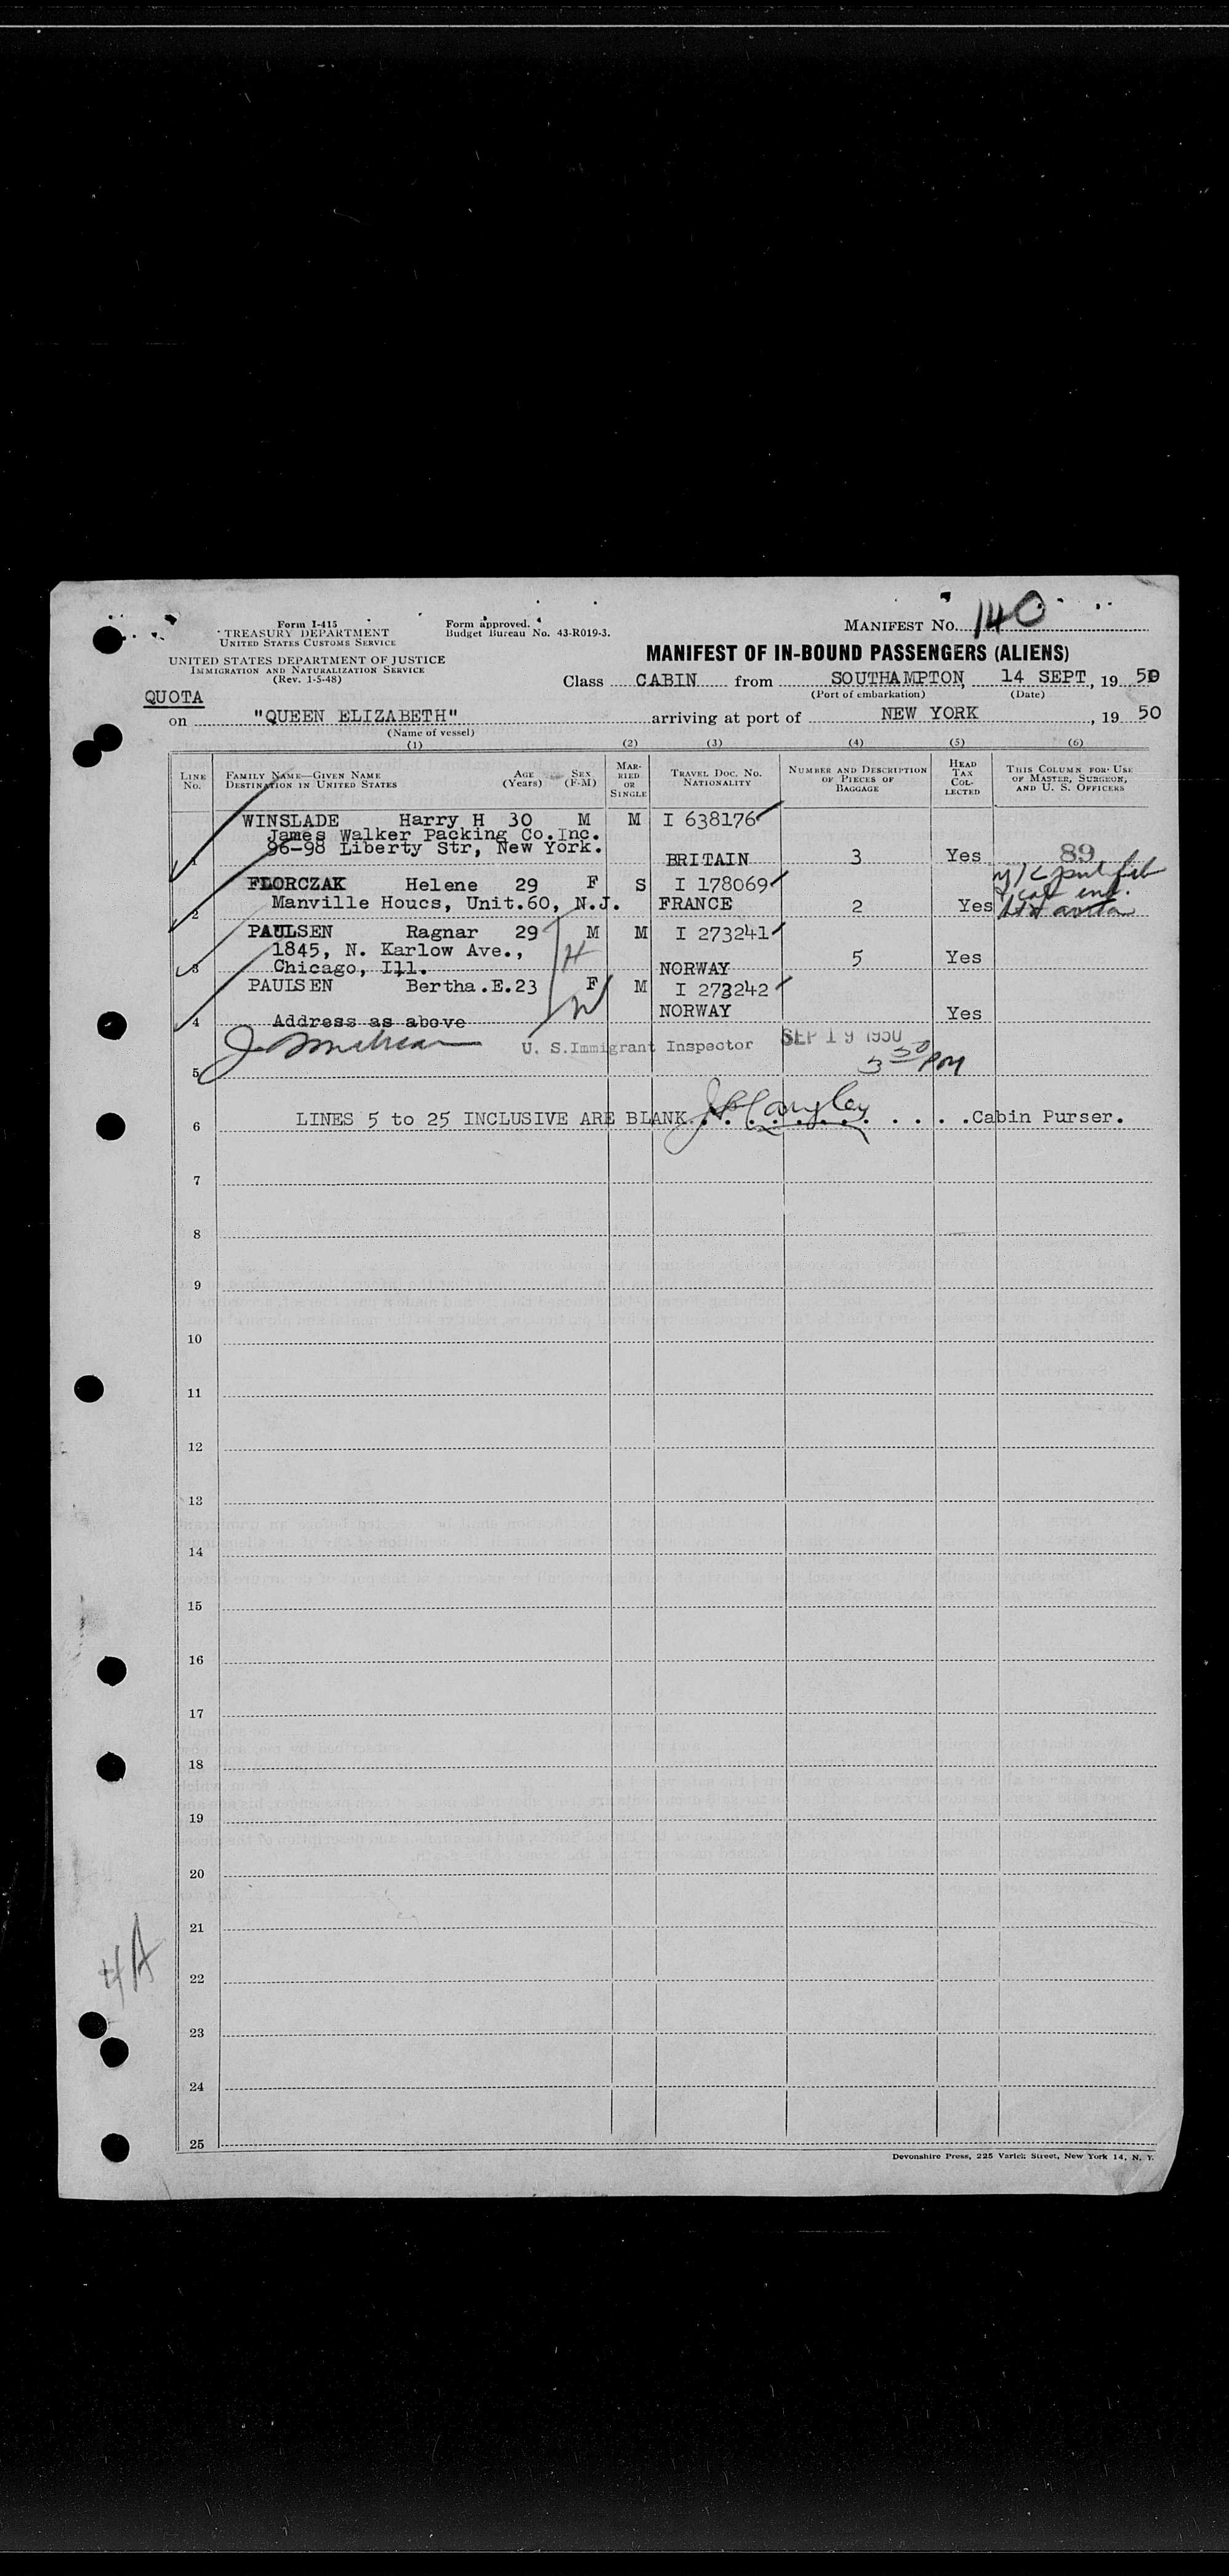 Form I-415
TREASURY DEPARTMENT
UNITED STATES CUSTOMS SERVICE
Form approved.
Budget Bureau No. 43-R019-3.
MANIFEST NO. 140
UNITED STATES DEPARTMENT OF JUSTICE
IMMIGRATION AND NATURALIZATION SERVICE
(Rev. 1-5-48)
MANIFEST OF IN-BOUND PASSENGERS (ALIENS)
Class CABIN from SOUTHAMPTON, 14 SEPT, 19 50
(Port of embarkation) (Date)
QUOTA
on "QUEEN ELIZABETH" arriving at port of NEW YORK, 19 50
(Name of vessel)
(1) (2) (3) (4) (5) (6)
LINE No. FAMILY NAME—GIVEN NAME DESTINATION IN UNITED STATES AGE (Years) SEX (F-M) MARRIED OR SINGLE TRAVEL DOC. NO. NATIONALITY NUMBER AND DESCRIPTION OF PIECES OF BAGGAGE HEAD TAX COLLECTED THIS COLUMN FOR USE OF MASTER, SURGEON, AND U. S. OFFICERS
WINSLADE Harry H 30 M M I 638176
James Walker Packing Co.Inc.
1 96-98 Liberty Str, New York. BRITAIN 3 Yes 89
FLORCZAK Helene 29 F S I 178069
2 Manville Houcs, Unit.60, N.J. FRANCE 2 Yes
PAULSEN Ragnar 29 M M I 273241
1845, N. Karlow Ave., H
3 Chicago, Ill. NORWAY 5 Yes
PAULSEN Bertha.E.23 F M I 273242
W NORWAY
4 Address as above Yes
U. S. Immigrant Inspector SEP 19 1950
5 3 30 PM
6 LINES 5 to 25 INCLUSIVE ARE BLANK. Langley Cabin Purser.
7
8
9
10
11
12
13
14
15
16
17
18
19
20
21
4A
22
23
24
25
Devonshire Press, 225 Varick Street, New York 14, N. Y.